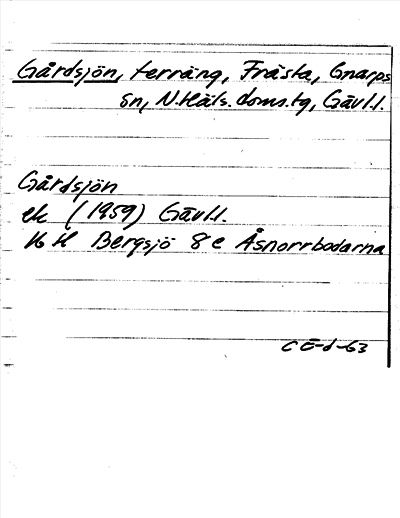 Gårdsjön, terräng, Frästa, Gnarps
sn, N.Häls.doms.tg, Gävl.l.
Gårdsjön
ek (1959) Gävl.l.
Bergsjö 8e Åsnorrbodarna